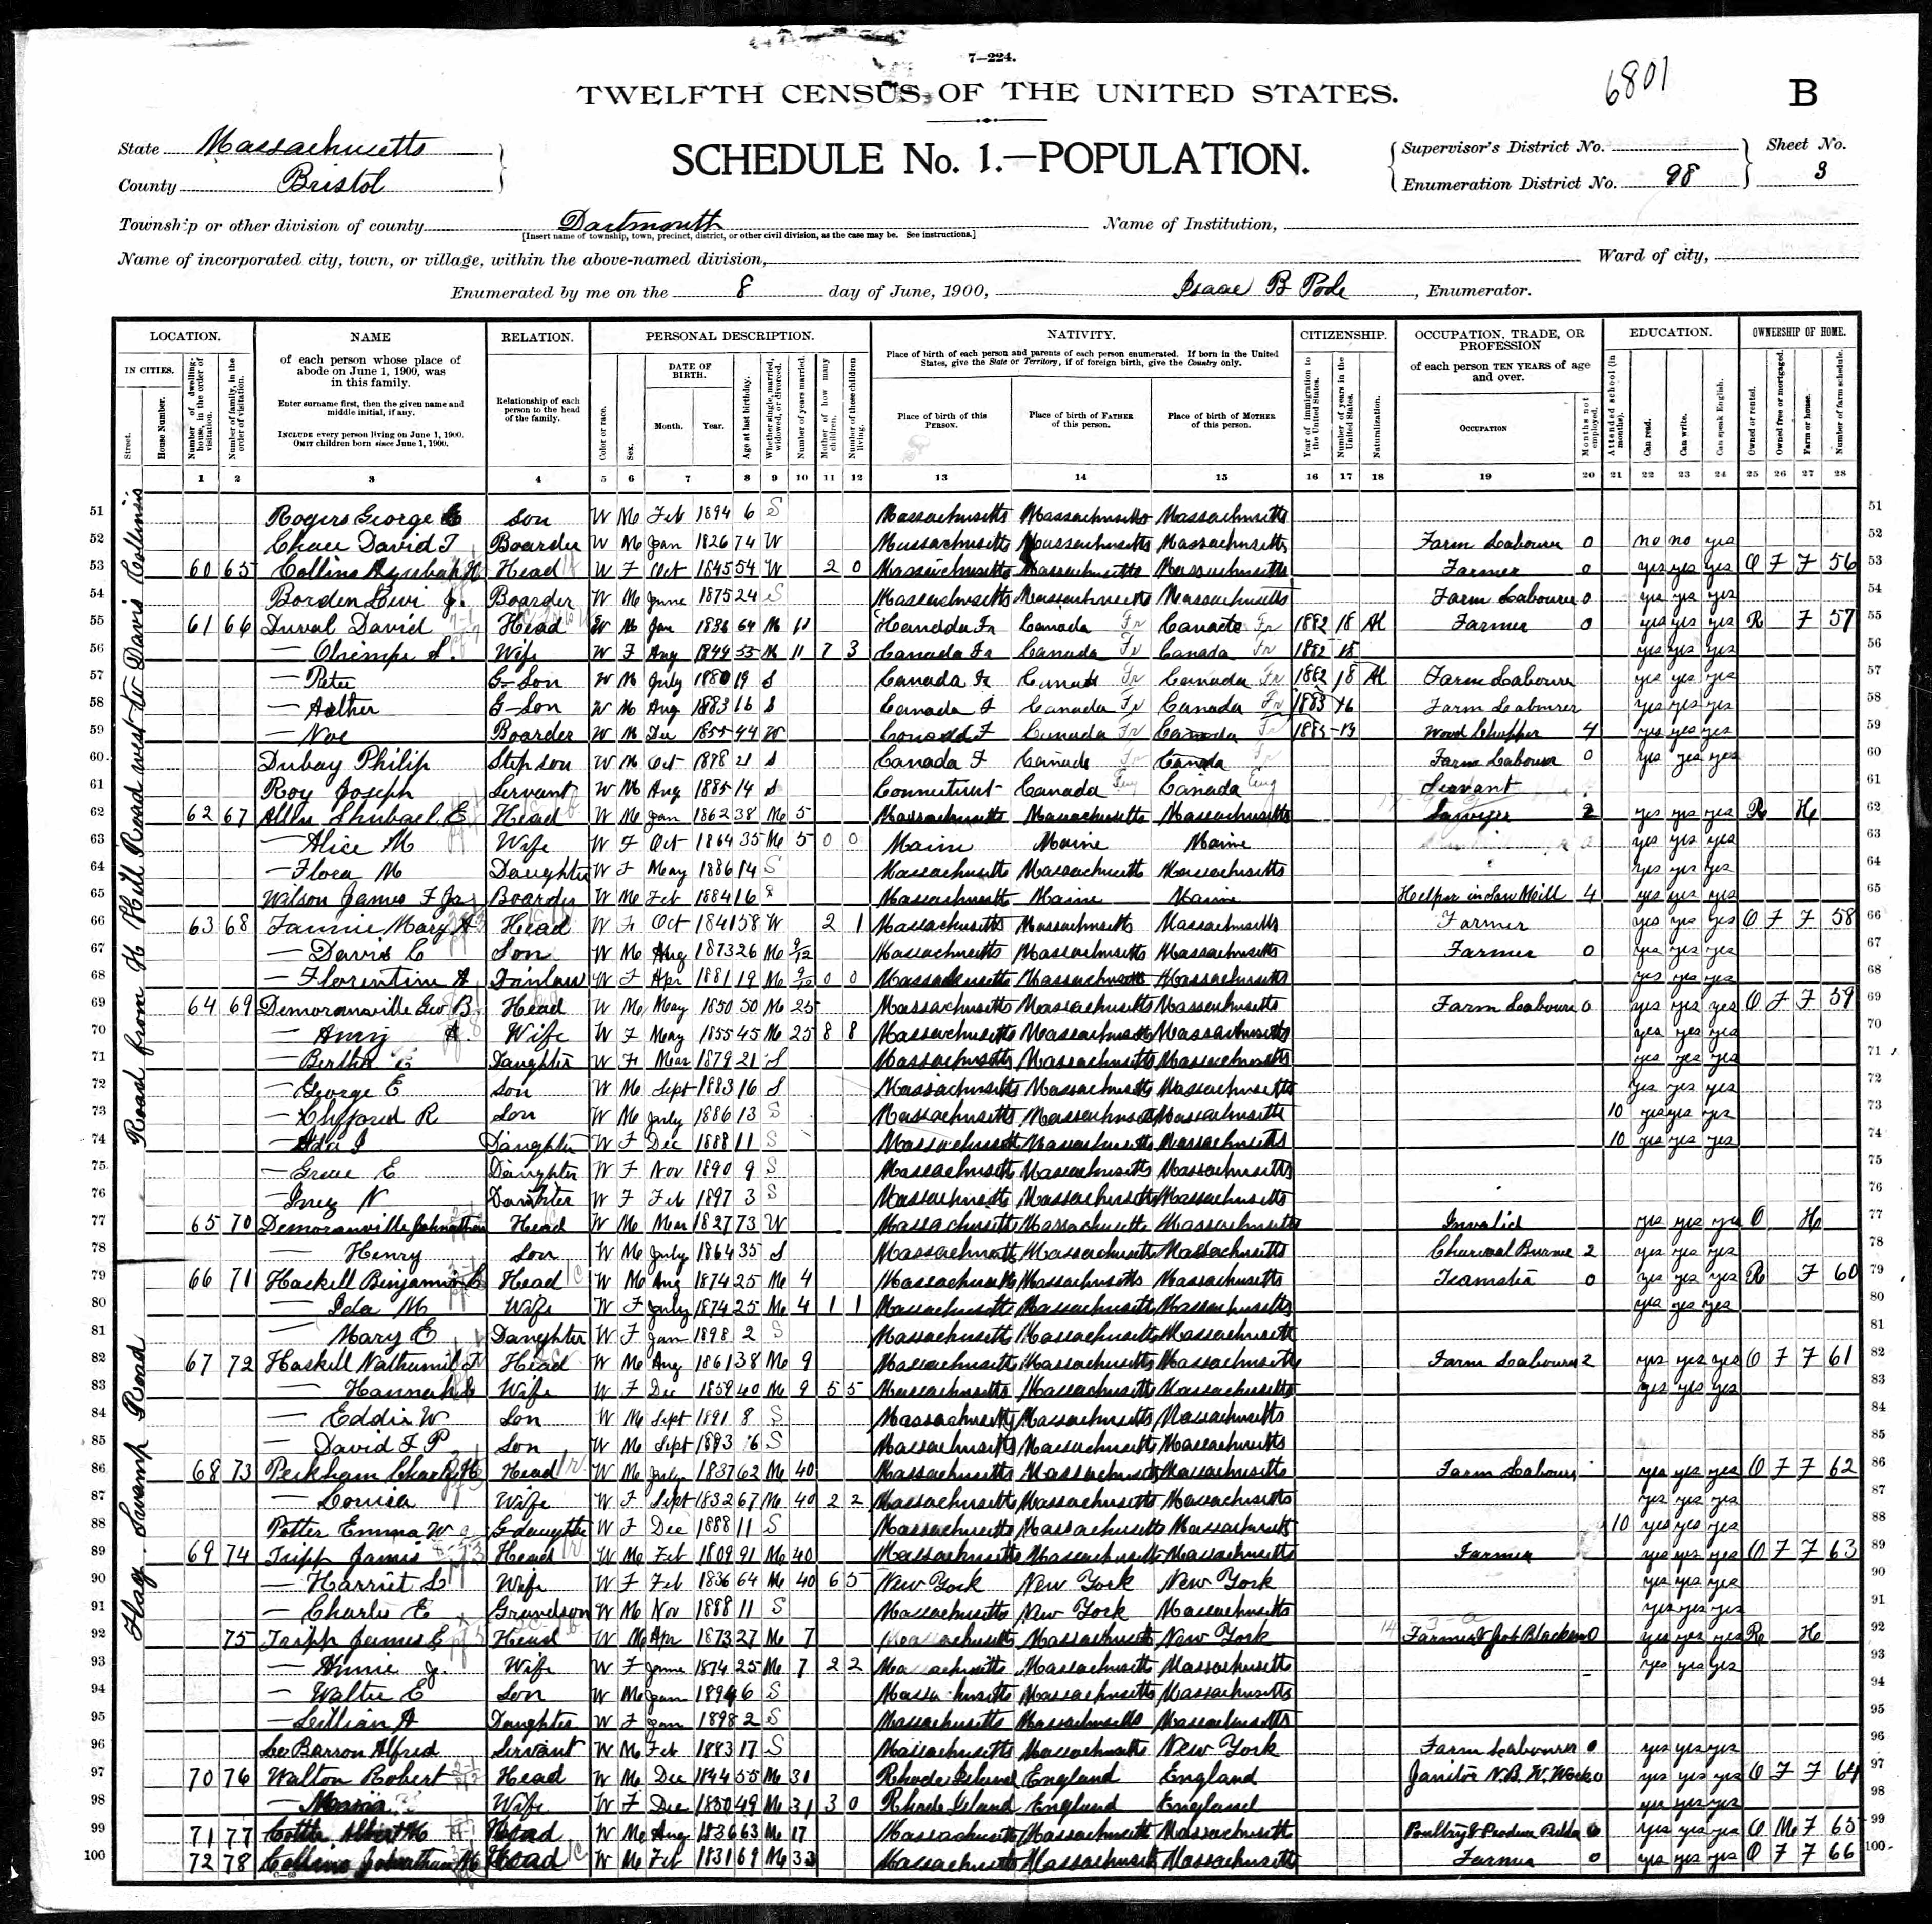 7—224.
6801
TWELFTH CENSUS OF THE UNITED STATES.
B
State Massachusetts
County Bristol
SCHEDULE No. 1.—POPULATION.
Supervisor's District No.
Enumeration District No. 98
Sheet No. 3
Township or other division of county Dartmouth Name of Institution,
[Insert name of township, town, precinct, district, or other civil division, as the case may be. See instructions.]
Name of incorporated city, town, or village, within the above-named division, Ward of city,
Enumerated by me on the 8 day of June, 1900, Isaac B , Enumerator.
LOCATION. NAME RELATION. PERSONAL DESCRIPTION. NATIVITY. CITIZENSHIP. OCCUPATION, TRADE, OR PROFESSION EDUCATION. OWNERSHIP OF HOME.
IN CITIES. Street. House Number.
Number of dwelling-house, in the order of visitation.
Number of family, in the order of visitation.
of each person whose place of abode on June 1, 1900, was in this family.
Enter surname first, then the given name and middle initial, if any.
INCLUDE every person living on June 1, 1900.
OMIT children born since June 1, 1900.
Relationship of each person to the head of the family.
Color or race. Sex. DATE OF BIRTH. Month. Year. Age at last birthday. Whether single, married, widowed, or divorced. Number of years married. Mother of how many children. Number of these children living.
Place of birth of each person and parents of each person enumerated. If born in the United States, give the State or Territory; if of foreign birth, give the Country only.
Place of birth of this PERSON. Place of birth of FATHER of this person. Place of birth of MOTHER of this person.
Year of immigration to the United States. Number of years in the United States. Naturalization.
of each person TEN YEARS of age and over.
OCCUPATION Months not employed.
Attended school (in months). Can read. Can write. Can speak English.
Owned or rented. Owned free or mortgaged. Farm or house. Number of farm schedule.
1 2 3 4 5 6 7 8 9 10 11 12 13 14 15 16 17 18 19 20 21 22 23 24 25 26 27 28
Road from H Hill Road west to Davis Collins
51 Rogers George Son W M Feb 1894 6 S Massachusetts Massachusetts Massachusetts 51
52 Chace David T Boarder W M Jan 1826 74 W Massachusetts Massachusetts Massachusetts Farm Labourer 0 no no yes 52
53 60 65 Collins Head W F Oct 1845 54 W 2 0 Massachusetts Massachusetts Massachusetts Farmer 0 yes yes yes O F F 56 53
54 Borden Levi J. Boarder W M June 1875 24 S Massachusetts Massachusetts Massachusetts Farm Labourer 0 yes yes yes 54
55 61 66 Duval David Head W M Jan 1836 64 M 11 Canada Fr Canada Fr Canada Fr 1882 18 Al Farmer 0 yes yes yes R F 57 55
56 — S. Wife W F Aug 1844 55 M 11 7 3 Canada Fr Canada Fr Canada Fr 1882 18 yes yes yes 56
57 — Peter G-Son W M July 1880 19 S Canada Fr Canada Fr Canada Fr 1882 18 Al Farm Labourer yes yes yes 57
58 — Arther G-Son W M Aug 1883 16 S Canada F Canada Fr Canada Fr 1883 16 Farm Labourer yes yes yes 58
59 — Noe Boarder W M Dec 1855 44 W Canada F Canada Fr Canada Fr Wood Chopper 4 yes yes yes 59
60 Dubay Philip Step son W M Oct 1878 21 S Canada F Canada Fr Canada Fr Farm Labourer 0 yes yes yes 60
61 Roy Joseph Servant W M Aug 1885 14 S Connecticut Canada Eng Canada Eng Servant 61
62 62 67 Allen Shubael E Head W M Jan 1862 38 M 5 Massachusetts Massachusetts Massachusetts Sawyer 2 yes yes yes R H 62
63 — Alice M Wife W F Oct 1864 35 M 5 0 0 Maine Maine Maine yes yes yes 63
64 — Flora M Daughter W F May 1886 14 S Massachusetts Massachusetts Massachusetts yes yes yes 64
65 Wilson James F Jr Boarder W M Feb 1884 16 S Massachusetts Maine Maine Helper in Saw Mill 4 yes yes yes 65
66 63 68 Mary A Head W F Oct 1841 58 W 2 1 Massachusetts Massachusetts Massachusetts Farmer yes yes yes O F F 58 66
67 — Davis C Son W M Aug 1873 26 M 9/12 Massachusetts Massachusetts Massachusetts Farmer 0 yes yes yes 67
68 — Florentine A D in law W F Apr 1881 19 M 9/12 0 0 Massachusetts Massachusetts Massachusetts yes yes yes 68
69 64 69 Demoranville Geo B. Head W M May 1850 50 M 25 Massachusetts Massachusetts Massachusetts Farm Labourer 0 yes yes yes O F F 59 69
70 — Amy A. Wife W F May 1855 45 M 25 8 8 Massachusetts Massachusetts Massachusetts yes yes yes 70
71 — Bertha E Daughter W F Mar 1879 21 S Massachusetts Massachusetts Massachusetts yes yes yes 71
72 — George E Son W M Sept 1883 16 S Massachusetts Massachusetts Massachusetts yes yes yes 72
73 — Clifford R Son W M July 1886 13 S Massachusetts Massachusetts Massachusetts 10 yes yes yes 73
74 — Ada I Daughter W F Dec 1888 11 S Massachusetts Massachusetts Massachusetts 10 yes yes yes 74
75 — Grace E Daughter W F Nov 1890 9 S Massachusetts Massachusetts Massachusetts 75
76 — Inez N Daughter W F Feb 1897 3 S Massachusetts Massachusetts Massachusetts 76
77 65 70 Demoranville Johnathan Head W M Mar 1827 73 W Massachusetts Massachusetts Massachusetts Invalid yes yes yes O H 77
78 — Henry Son W M July 1864 35 S Massachusetts Massachusetts Massachusetts Charcoal Burner 2 yes yes yes 78
Flag Swamp Road
79 66 71 Haskell Binjamin C Head W M Aug 1874 25 M 4 Massachusetts Massachusetts Massachusetts Teamster 0 yes yes yes R F 60 79
80 — Ida M Wife W F July 1874 25 M 4 1 1 Massachusetts Massachusetts Massachusetts yes yes yes 80
81 — Mary E Daughter W F Jan 1898 2 S Massachusetts Massachusetts Massachusetts 81
82 67 72 Haskell Nathaniel Head W M Aug 1861 38 M 9 Massachusetts Massachusetts Massachusetts Farm Labourer 2 yes yes yes O F F 61 82
83 — Hannah Wife W F Dec 1859 40 M 9 5 5 Massachusetts Massachusetts Massachusetts yes yes yes 83
84 — Eddie W Son W M Sept 1891 8 S Massachusetts Massachusetts Massachusetts 84
85 — David F P Son W M Sept 1893 6 S Massachusetts Massachusetts Massachusetts 85
86 68 73 Peckham Charles H Head W M July 1837 62 M 40 Massachusetts Massachusetts Massachusetts Farm Labourer yes yes yes O F F 62 86
87 — Louisa Wife W F Sept 1832 67 M 40 2 2 Massachusetts Massachusetts Massachusetts yes yes yes 87
88 Potter Emma W G daughter W F Dec 1888 11 S Massachusetts Massachusetts Massachusetts 10 yes yes yes 88
89 69 74 Tripp James Head W M Feb 1809 91 M 40 Massachusetts Massachusetts Massachusetts Farmer yes yes yes O F F 63 89
90 — Harriet L Wife W F Feb 1836 64 M 40 6 5 New York New York New York yes yes yes 90
91 — Charlie E Grandson W M Nov 1888 11 S Massachusetts New York Massachusetts yes yes yes 91
92 75 Tripp James E Head W M Apr 1873 27 M 7 Massachusetts Massachusetts New York Farmer & Job 0 yes yes yes R H 92
93 — Annie J. Wife W F June 1874 25 M 7 2 2 Massachusetts Massachusetts Massachusetts yes yes yes 93
94 — Walter E Son W M Jan 1894 6 S Massachusetts Massachusetts Massachusetts 94
95 — Lillian A Daughter W F Jan 1898 2 S Massachusetts Massachusetts Massachusetts 95
96 Le Barron Alfred Servant W M Feb 1883 17 S Massachusetts Massachusetts New York Farm Labourer 0 yes yes yes 96
97 70 76 Walton Robert Head W M Dec 1844 55 M 31 Rhode Island England England Janitor N.B. W. Works 0 yes yes yes O F F 64 97
98 — Maria Wife W F Dec 1850 49 M 31 3 0 Rhode Island England England yes yes yes 98
99 71 77 Cottle Albert Head W M Aug 1836 63 M 17 Massachusetts Massachusetts Massachusetts Poultry & Produce 0 yes yes yes O M F 65 99
100 72 78 Collins Johnathan Head W M Feb 1831 69 M 33 Massachusetts Massachusetts Massachusetts Farmer 0 yes yes yes O F F 66 100